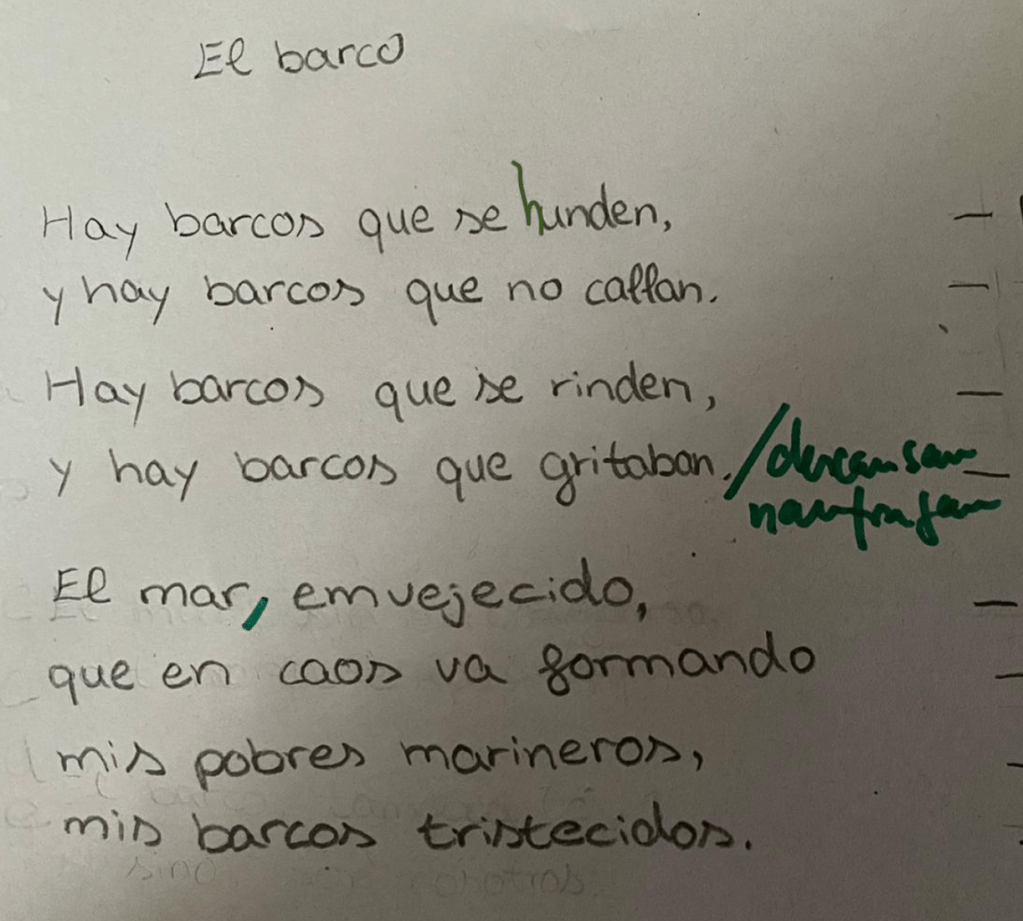 El barco
Hay barcos que se hunden,
y hay barcos que no callan.
Hay barcos que se rinden,
y hay barcos que gritaban. / descansan
naufragan
El mar, emvejecido,
que en caos va formando
mis pobres marineros,
mis barcos tristecidos.